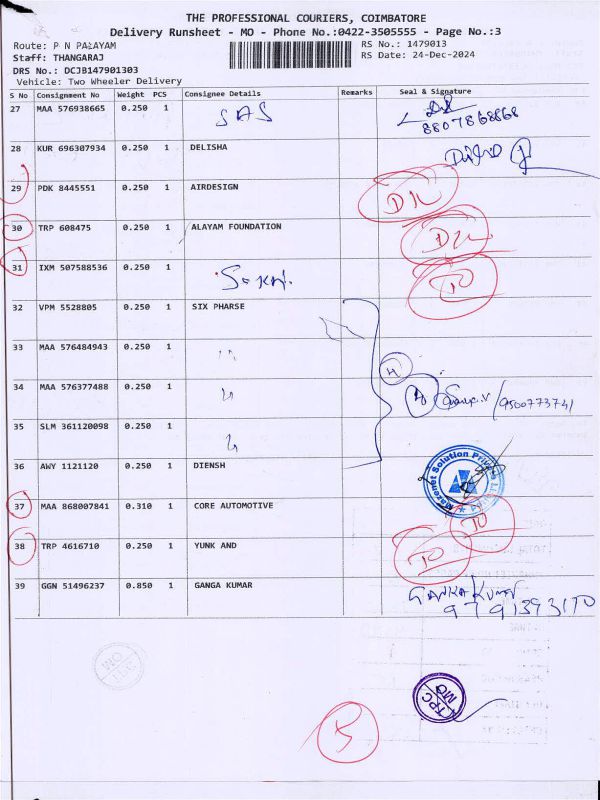 THE PROFESSIONAL COURIERS, COIMBATORE
Delivery Runsheet - MO - Phone No.:0422-3505555 - Page No.:3
Route: P N PALAYAM
RS No.: 1479013
Staff: THANGARAJ
RS Date: 24-Dec-2024
DRS No.: DCJB147901303
Vehicle: Two Wheeler Delivery
S No Consignment No Weight PCS Consignee Details Remarks Seal & Signature
27 MAA 576938665 0.250 1 SAS
8807868868
28 KUR 696307934 0.250 1 DELISHA
29 PDK 8445551 0.250 1 AIRDESIGN
30 TRP 608475 0.250 1 ALAYAM FOUNDATION
31 IXM 507588536 0.250 1
32 VPM 5528805 0.250 1 SIX PHARSE
33 MAA 576484943 0.250 1
34 MAA 576377488 0.250 1
9500773741
35 SLM 361120098 0.250 1
36 AWY 1121120 0.250 1 DIENSH
37 MAA 868007841 0.310 1 CORE AUTOMOTIVE
38 TRP 4616710 0.250 1 YUNK AND
39 GGN 51496237 0.850 1 GANGA KUMAR
TPC
MO
5